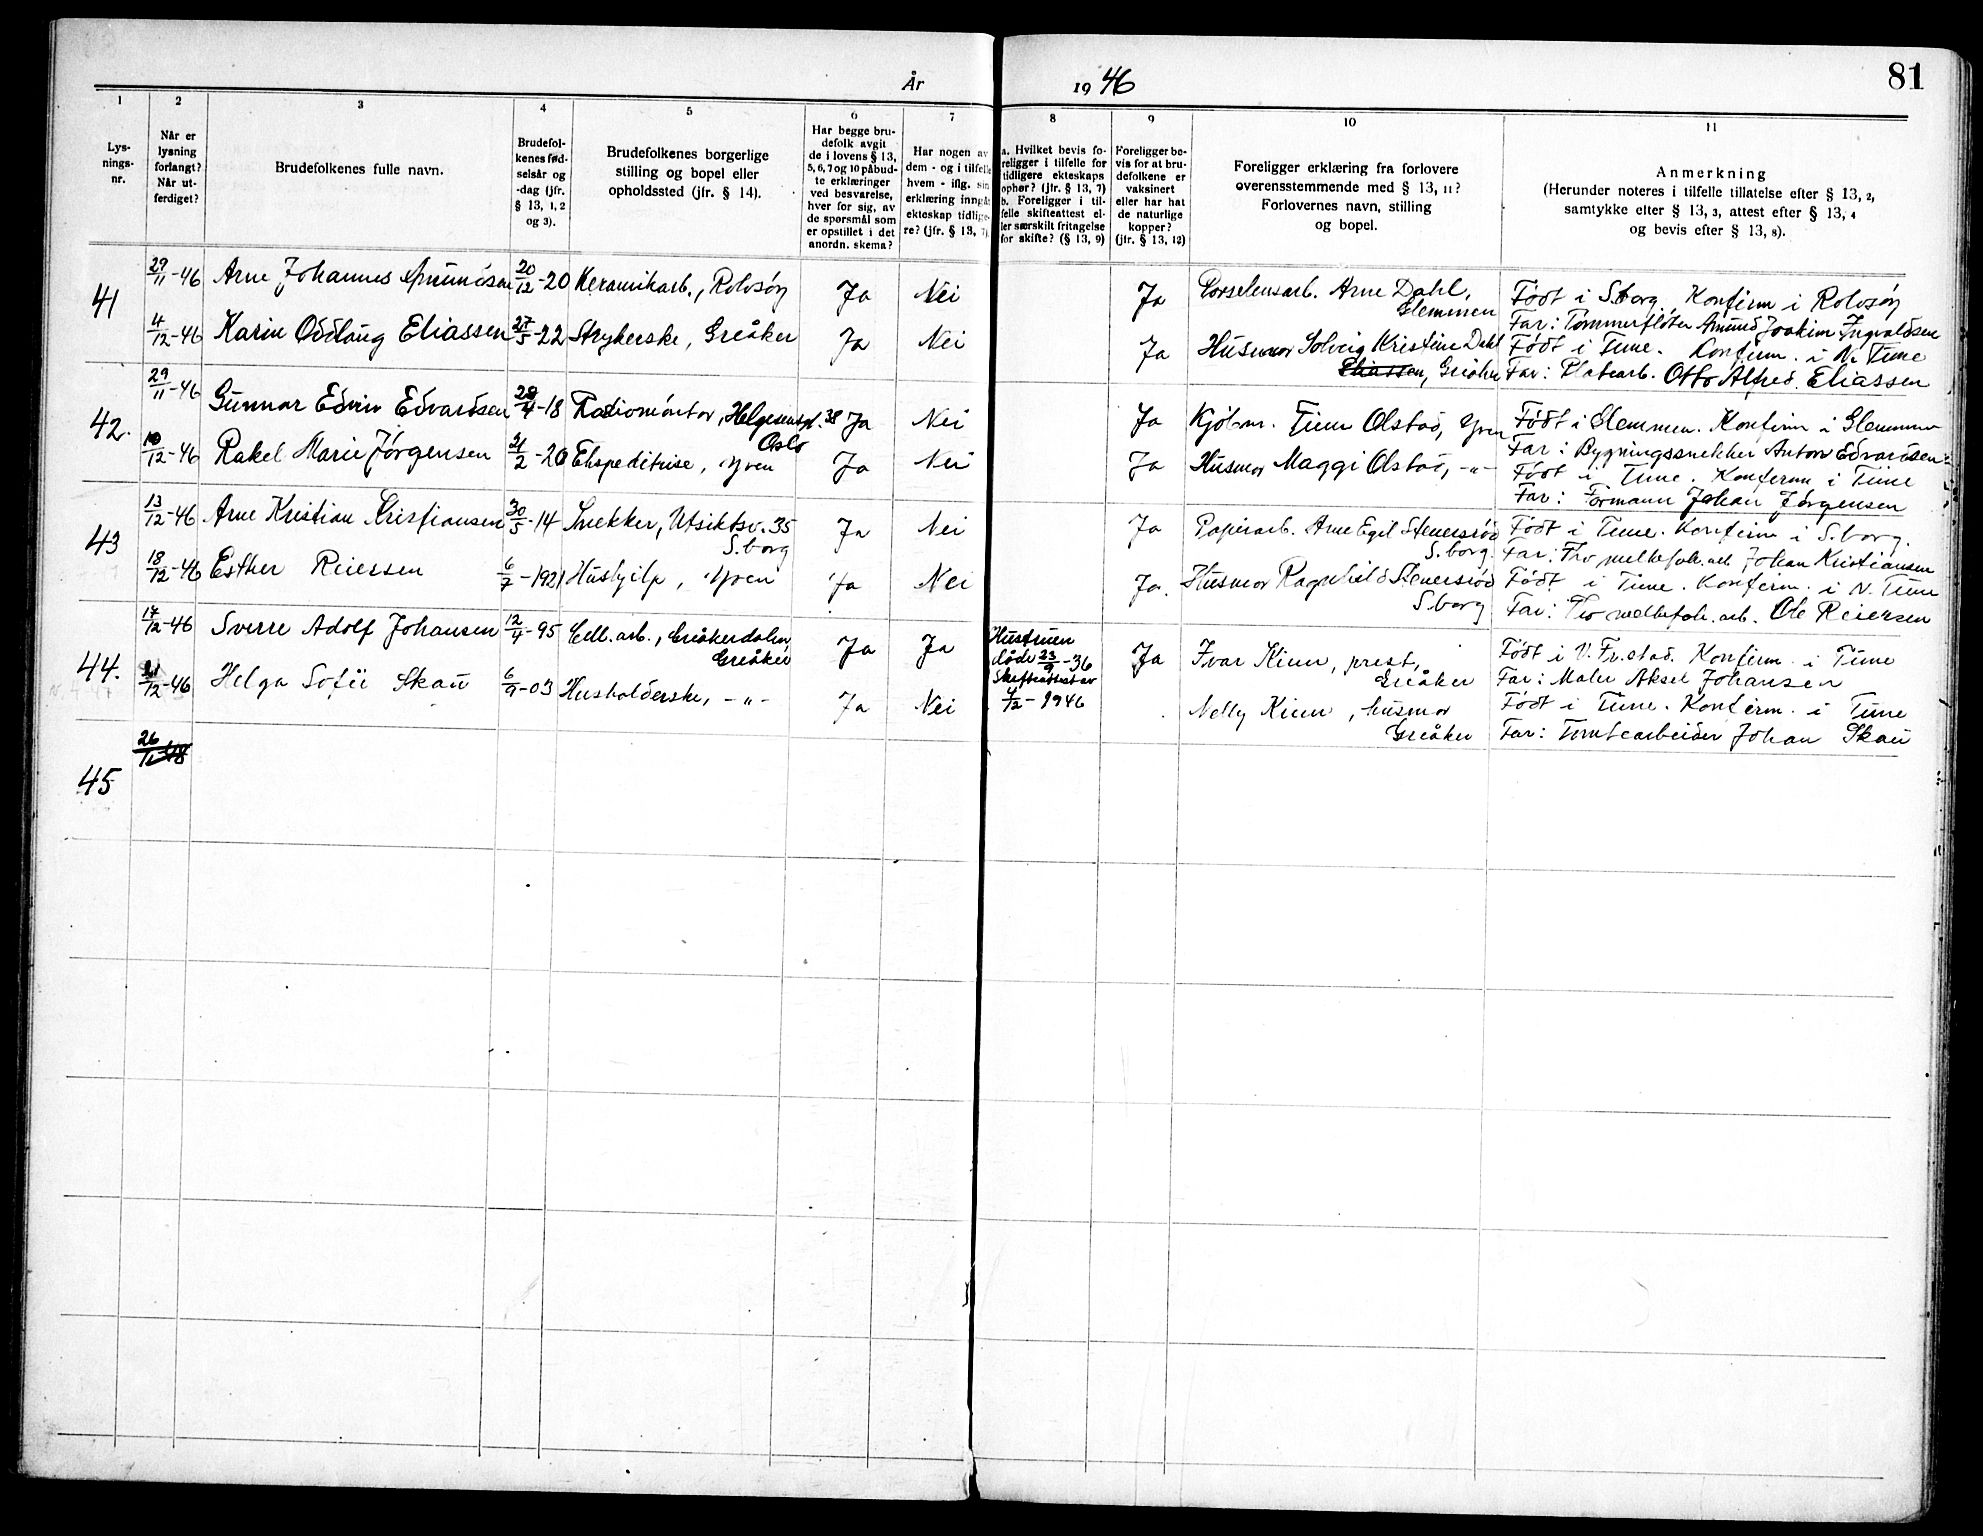 År 1946
81
1 2 3 4 5 6 7 8 9 10 11
Lys-
nings-
nr.
Når er
lysning
forlangt?
Når ut-
ferdiget?
Brudefolkenes fulle navn.
Brudefol-
kenes fød-
selsår og
-dag (jfr.
§ 13, 1, 2
og 3).
Brudefolkenes borgerlige
stilling og bopel eller
opholdssted (jfr. § 14).
Har begge bru-
defolk avgit
de i lovens § 13,
5, 6, 7 og 10 påbud-
te erklæringer
ved besvarelse,
hver for sig, av
de spørsmål som
er opstillet i det
anordn. skema?
Har nogen av
dem - og i tilfelle
hvem - iflg. sin
erklæring inngåt
ekteskap tidlige-
re? (jfr. § 13, 7).
a. Hvilket bevis fo-
religger i tilfelle for
tidligere ekteskaps
ophør? (jfr. § 13, 7)
b. Foreligger i til-
felle skifteattest el-
ler særskilt fritagelse
for skifte? (§ 13, 9)
Foreligger be-
vis for at bru-
defolkene er
vaksinert
eller har hat
de naturlige
kopper?
(jfr. § 13, 12)
Foreligger erklæring fra forlovere
overensstemmende med § 13, 11?
Forlovernes navn, stilling
og bopel.
Anmerkning
(Herunder noteres i tilfelle tillatelse efter § 13, 2,
samtykke efter § 13, 3, attest efter § 13, 4
og bevis efter § 13, 8).
41
29/11-46 Arne Johannes Amundsen 20/12-20 Keramikarb., Rolvsøy Ja Nei Ja Porselensarb. Arne Dahl,
Glemmen
Født i S.borg. Konfirm i Rolvsøy
Far: Tømmerfløter Amund Joakim Ingvaldsen
4/12-46 Karin Oddlaug Eliassen 27/5-22 Strykerske, Greåker Ja Nei Ja Husmor Solveig Kristine Dahl
Eliassen, Greåker
Født i Tune. Konfirm. i N. Tune
Far: Platearb. Otto Alfred Eliassen
42.
29/11-46 Gunnar Edvin Edvardsen 28/4-18 Radiomontør, Helgesensgt. 38
Oslo
Ja Nei Ja Kjøbm. Finn Olstad, Yven
Født i Glemmen. Konfirm i Glemmen
Far: Bygningssnekker Anton Edvardsen
10/12-46 Rakel Marie Jørgensen 21/2-20 Ekspeditrise, Yven Ja Nei Ja Husmor Maggi Olstad, -"-
Født i Tune. Konferm i Tune
Far: Formann Johan Jørgensen
43
13/12-46 Arne Kristian Kristiansen 30/5-14 Snekker, Utsiktsv. 35
S.borg
Ja Nei Ja Papirarb. Arne Egil Stenersrød
S.borg.
Født i Tune. Konfirm i S.borg.
Far: Johan Kristiansen
18/12-46 Esther Reiersen 6/7-1921 Hushjelp, Yven Ja Nei Ja. Husmor Ragnhild Stenersrød
S.borg
Født i Tune. Konfirm. i N. Tune
Far: Ole Reiersen
44.
17/12-46 Sverre Adolf Johansen 12/4-95 Cell.arb., Greåkerdalen
Greåker
Ja Ja Hustruen
døde 23/9-36
Skifteattest av
4/12-1946
Ja Ivar Kinn, prest,
Greåker
Født i V. Fr.stad. Konfirm. i Tune
Far: Maler Aksel Johansen
21/12-46 Helga Sofie Skau 6/9-03 Husholderske, -"- Ja Nei Nelly Kinn, husmor
Greåker
Født i Tune. Konferm. i Tune
Far: Tomtearbeider Johan Skau
45
26/11-48